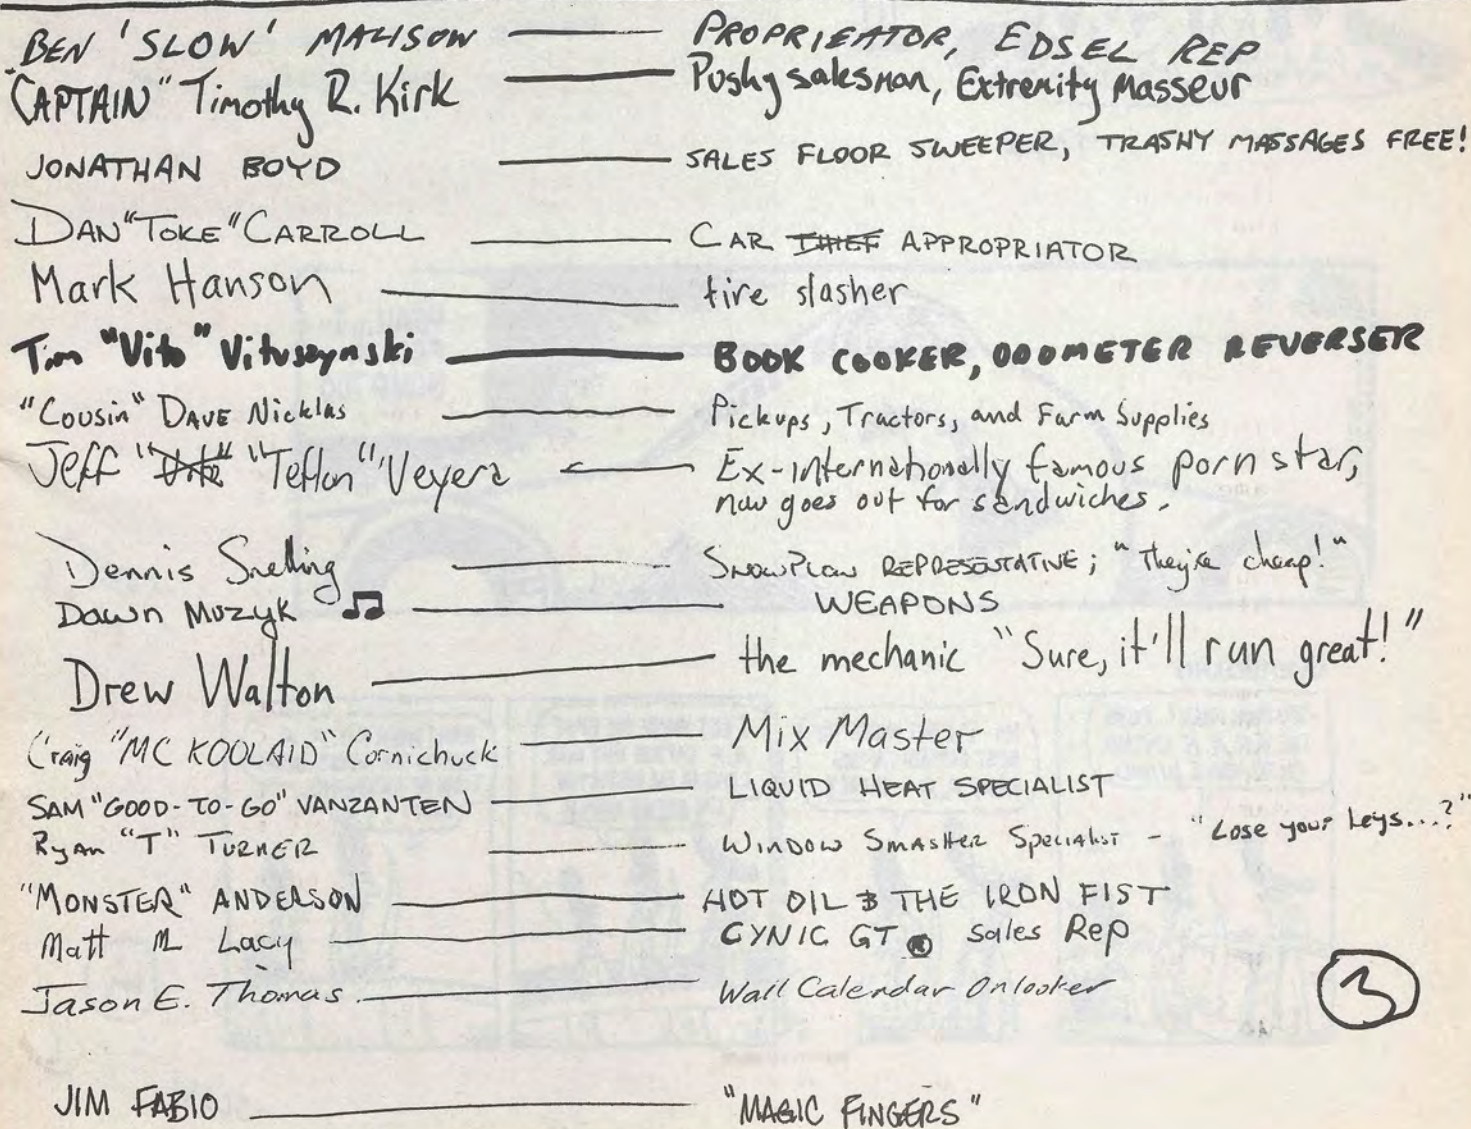 BEN 'SLOW' MALISOW — PROPRIEATOR, EDSEL REP
"CAPTAIN" Timothy R. Kirk — Pushy salesman, Extremity Masseur
JONATHAN BOYD — SALES FLOOR SWEEPER, TRASHY MASSAGES FREE!
DAN "TOKE" CARROLL — CAR THIEF APPROPRIATOR
Mark Hanson — tire slasher
Tim "Vito" Vituszynski — BOOK COOKER, ODOMETER REVERSER
"Cousin" DAVE Nicklas — Pickups, Tractors, and Farm Supplies
Jeff "Vito" "Teflon" Veyera — Ex-internationally famous porn star,
now goes out for sandwiches.
Dennis Snelling — SNOWPLOW REPRESENTATIVE; "They're cheap!"
Dawn Muzyk ♫ — WEAPONS
Drew Walton — the mechanic "Sure, it'll run great!"
Craig "MC KOOLAID" Cornichuck — Mix Master
SAM "GOOD-TO-GO" VANZANTEN — LIQUID HEAT SPECIALIST
Ryan "T" TURNER — WINDOW SMASHER Specialist - "Lose your keys...?"
"MONSTER" ANDERSON — HOT OIL & THE IRON FIST
Matt M Lacy — CYNIC GT ® Sales Rep
Jason E. Thomas — Wall Calendar Onlooker
3
JIM FABIO — "MAGIC FINGERS"